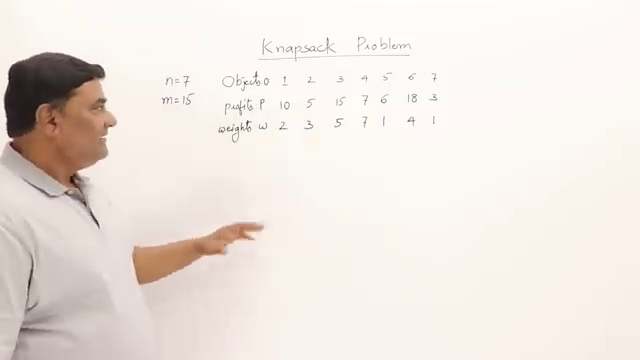 Knapsack Problem
n=7 Objects O 1 2 3 4 5 6 7
m=15 profits P 10 5 15 7 6 18 3
weights w 2 3 5 7 1 4 1